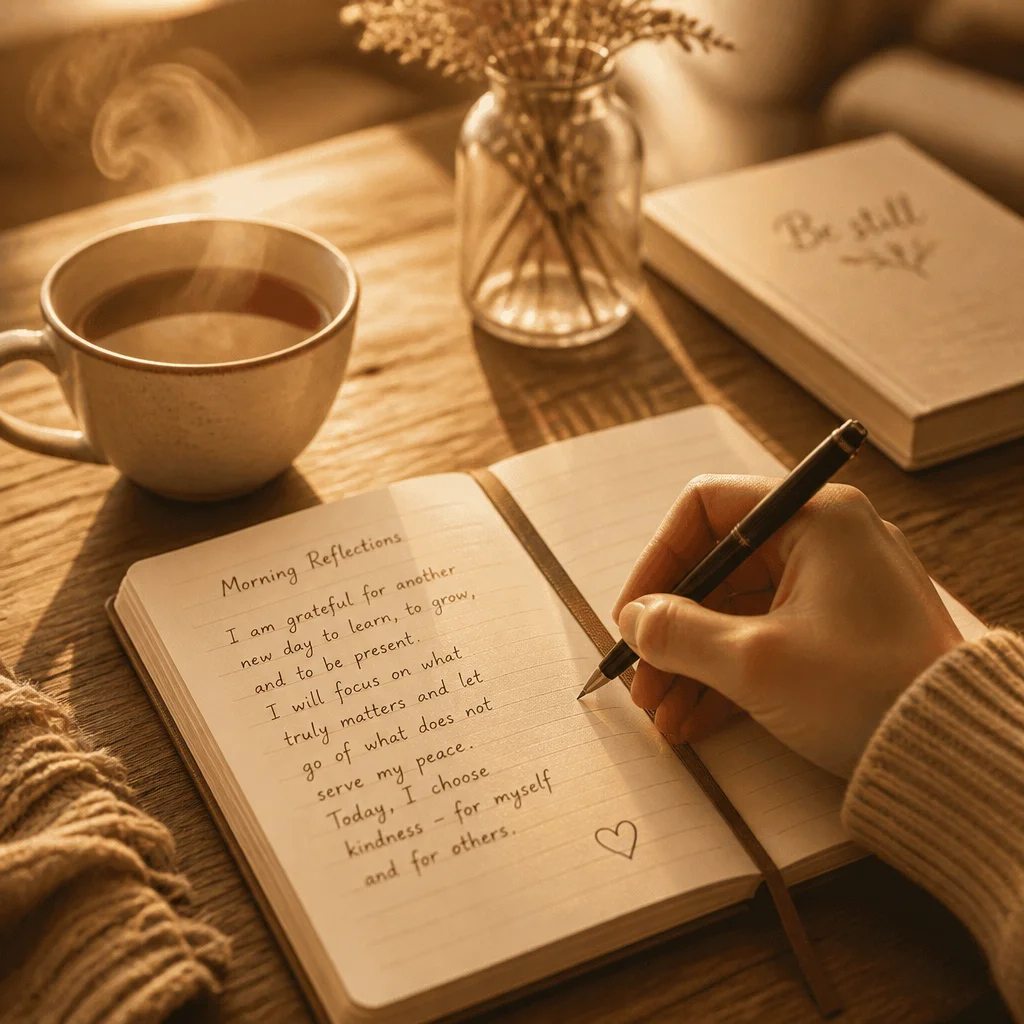 Be still
Morning Reflections
I am grateful for another
new day to learn, to grow,
and to be present.
I will focus on what
truly matters and let
go of what does not
serve my peace.
Today, I choose
kindness – for myself
and for others.